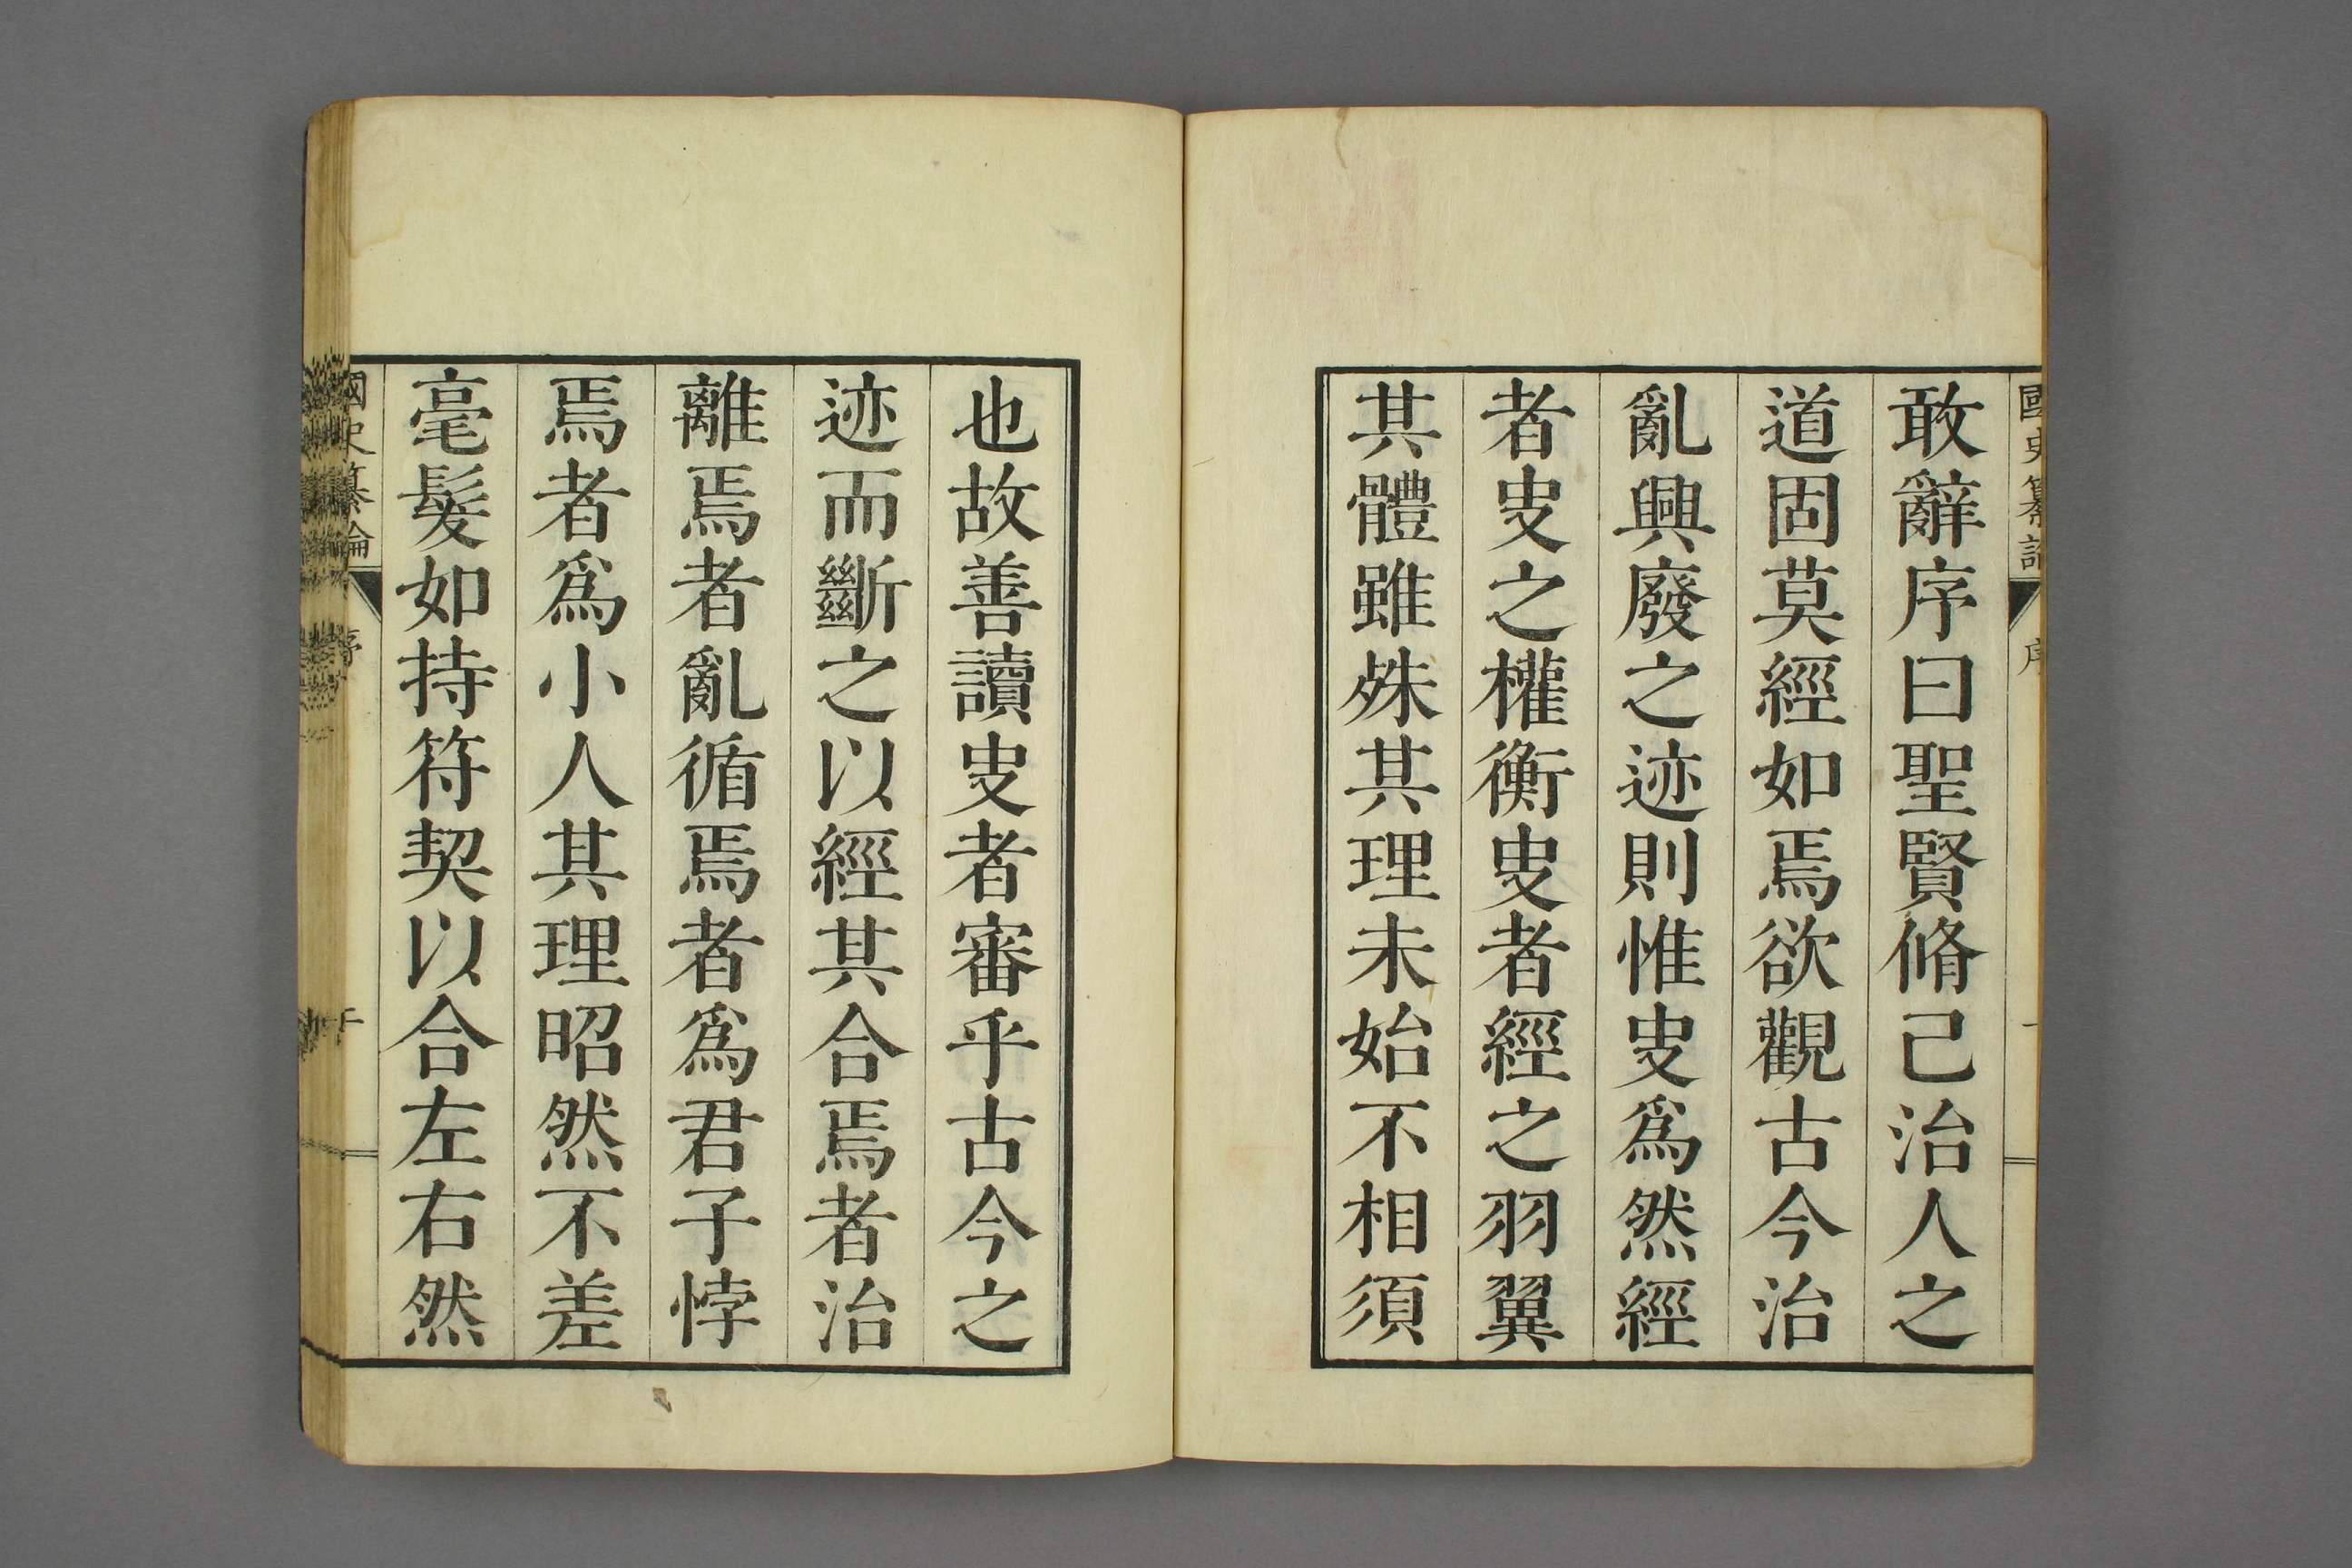 國史纂論
序
敢辭序曰聖賢脩己治人之
道固莫經如焉欲觀古今治
亂興廢之迹則惟史爲然經
者史之權衡史者經之羽翼
其體雖殊其理未始不相須
也故善讀史者審乎古今之
迹而斷之以經其合焉者治
離焉者亂循焉者爲君子悖
焉者爲小人其理昭然不差
毫髮如持符契以合左右然
國史纂論
序